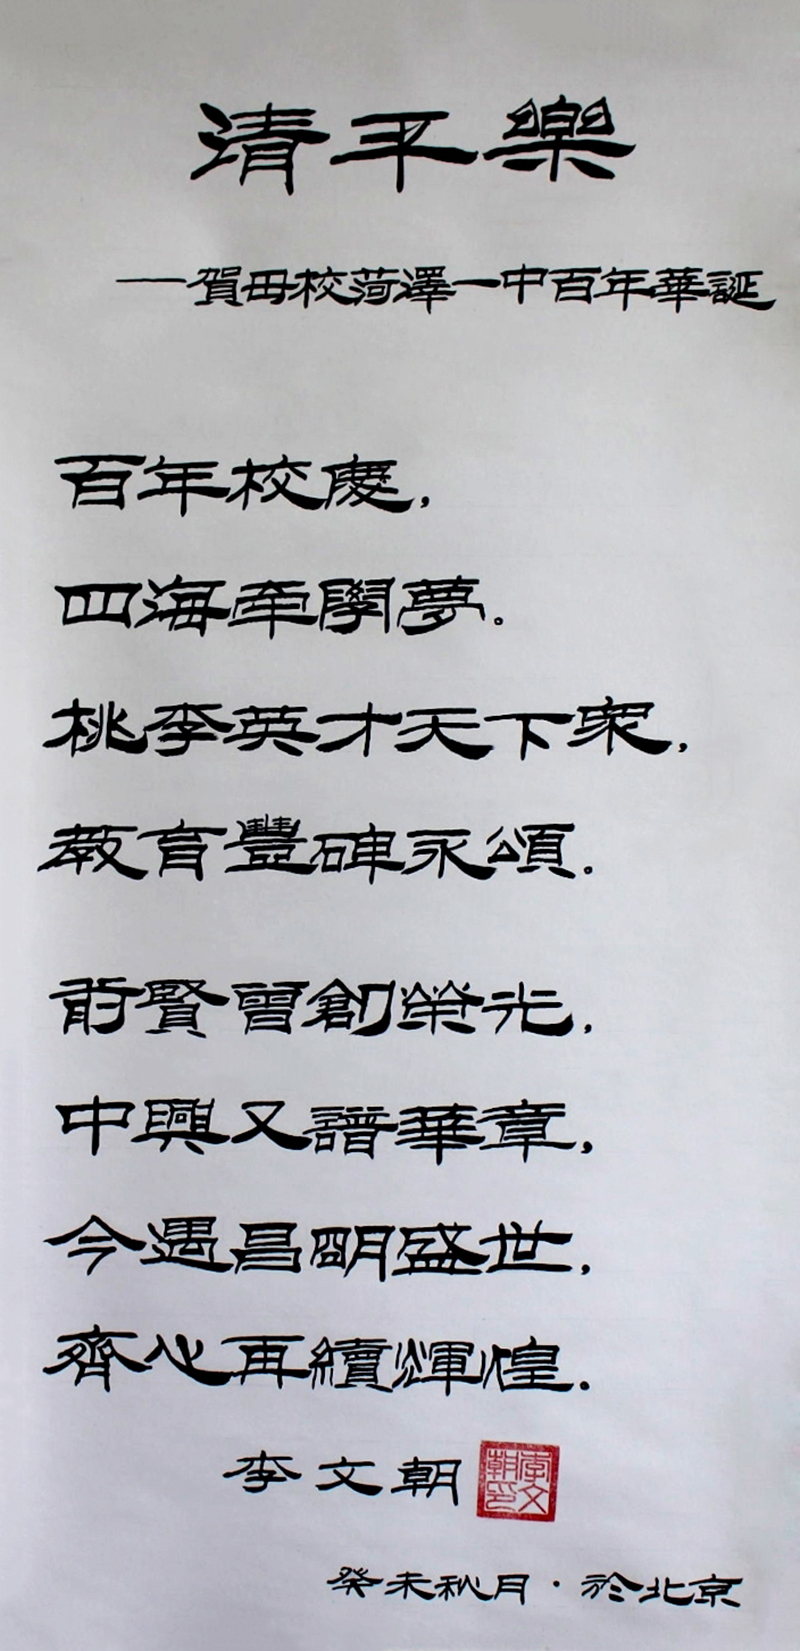 清平樂
——賀母校菏澤一中百年華誕
百年校慶，
四海牽學夢。
桃李英才天下眾，
教育豐碑永頌。
前賢曾創榮光，
中興又譜華章，
今遇昌明盛世，
齊心再續煇煌。
李文朝
李文朝印
癸未秋月·於北京